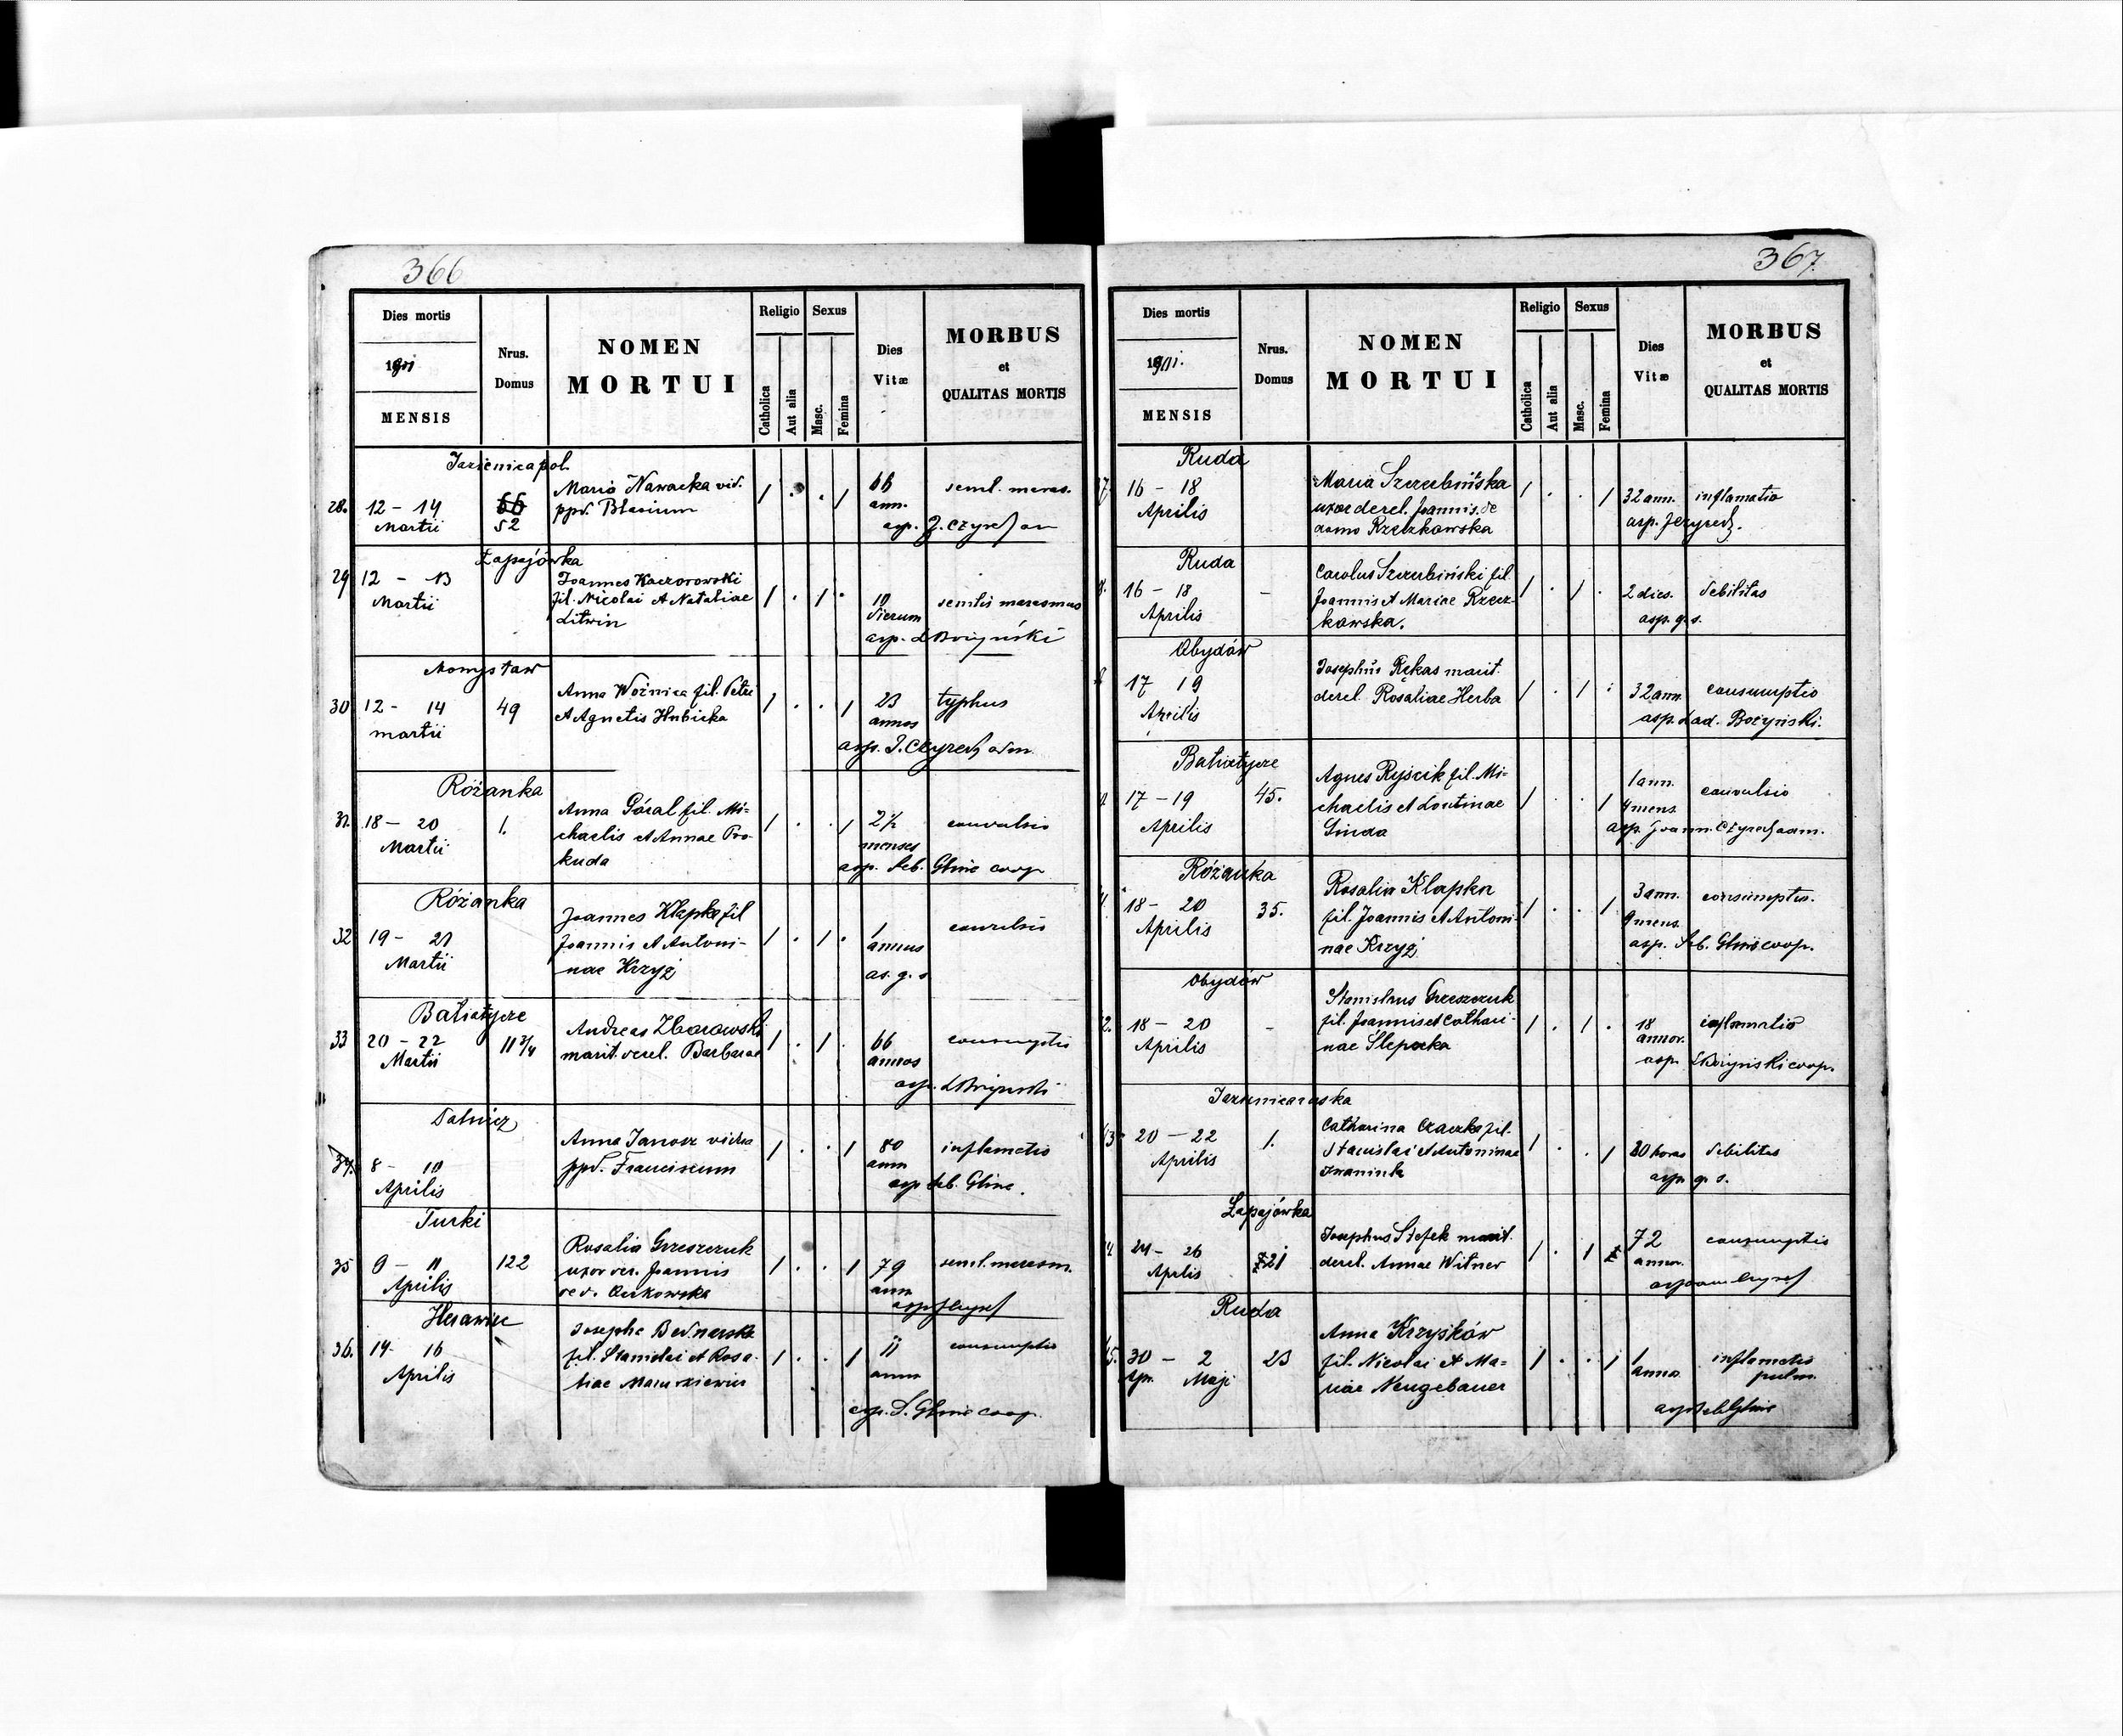 366
Dies mortis
1911
MENSIS
Nrus.
Domus
NOMEN
MORTUI
Religio
Catholica
Aut alia
Sexus
Masc.
Femina
Dies
Vitæ
MORBUS
et
QUALITAS MORTIS
Jazienica pol.
28. 12 - 14
Martii
66
52
Maria Nawacka vid.
ppd. Blasium
1 . . 1
66
ann.
senil. maras.
asp. J. Czyrek
Łapajówka
29 12 - 13
Martii
Joannes Kaczorowski
fil. Nicolai et Nataliae
Litwin
1 . 1 .
10
dierum
senilis marasmus
asp. L Bożyński
30 12 - 14
martii
49
Anna Woźnica fil. Petri
et Agnetis Hubicka
1 . . 1
23
annos
typhus
asp. J. Czyrek adm.
Różanka
31. 18 - 20
Martii
1.
Anna Góral fil. Mi=
chaelis et Annae Pro-
kuda
1 . . 1
2½
menses
convulsio
asp. Seb. Glinic coop
Różanka
32 19 - 21
Martii
Joannes Kłapko fil
Joannis et Antoni-
nae Krzyż
1 . 1 .
1
annus
convulsio
as. q. s
Batiatycze
33 20 - 22
Martii
Andreas Zborowski
marit. derel. Barbarae
1 . 1 .
66
annos
consumptio
asp. L Bożyński
34. 8 - 10
Aprilis
Anna Janosz vidua
ppd. Franciscum
1 . . 1
80
ann
inflamatio
asp Seb. Glinic.
Turki
35 9 - 11
Aprilis
122
Rosalia Grzeszczuk
uxor der. Joannis
1 . . 1
79
ann
senil. marasm.
asp J Czyrek
36. 14 - 16
Aprilis
Josepha Bednarska
fil. Stanislai et Rosa-
liae
1 . . 1
11
annor
consumptio
asp. S. Glinic coop.
367
Dies mortis
1911.
MENSIS
Nrus.
Domus
NOMEN
MORTUI
Religio
Catholica
Aut alia
Sexus
Masc.
Femina
Dies
Vitæ
MORBUS
et
QUALITAS MORTIS
Ruda
16 - 18
Aprilis
Maria Szczubińska
uxor derel. Joannis. de
domo Rzeczkowska
1 . . 1
32 ann.
inflamatio
asp. J Czyrek.
Ruda
16 - 18
Aprilis
-
Carolus Szczubiński fil.
Joannis et Mariae Rzecz-
kowska.
1 . 1 .
2 dies.
debilitas
asp. q. s.
Obydów
17 19
Aprilis
Josephus Rękas marit.
derel. Rosaliae Herba
1 . 1 .
32 ann.
consumptio
asp. Lad. Bożyński.
Batiatycze
17 - 19
Aprilis
45.
Agnes Ryścik fil. Mi=
chaelis et
1 . . 1
1 ann.
4 mens.
convulsio
asp. Joann. Czyrek adm.
Różanka
18 - 20
Aprilis
35.
Rosalia Kłapko
fil. Joannis et Antoni-
nae Krzyż
1 . . 1
3 ann.
9 mens.
consumptio.
asp. Seb. Glinic coop.
Obydów
18 - 20
Aprilis
-
Stanislaus Grzeszczuk
fil. Joannis et Cathari-
nae Ślepecka
1 . 1 .
18
annor.
inflamatio
asp. L Bożyński coop.
Jazienica ruska
20 - 22
Aprilis
1.
Catharina Czaczka fil.
Stanislai et Antoninae
Iwaniuk
1 . . 1
20 horas
debilitas
asp q. s.
Łapajówka
24 - 26
Aprilis
21
Josephus Stefek marit.
derel. Annae Witner
1 . 1
72
annor.
consumptio
Ruda
30 - 2
Apr. Maji
23
Anna Krzyśków
fil. Nicolai et Ma=
riae Neugebauer
1 . . 1
1
annor.
inflamatio
pulm.
asp Seb Glinic